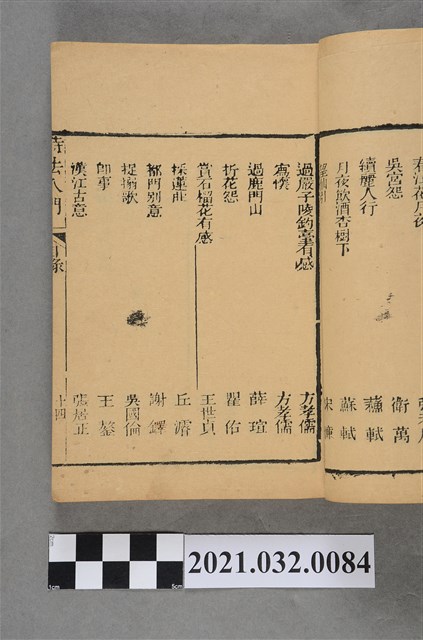 吳宮怨 衛萬
續麗人行 蘇軾
月夜飲酒杏樹下 蘇軾
宋濂
過嚴子陵釣臺有感 方孝儒
寓懷 方孝儒
過鹿門山 薛瑄
折花怨 瞿佑
賞石榴花有感 王世貞
採蓮莊 丘濬
都門別意 謝鐸
捉搦歌 吳國倫
即事 王鏊
漢江古意 張居正
詩法入門 目錄 十四
2021.032.0084
1cm 5cm